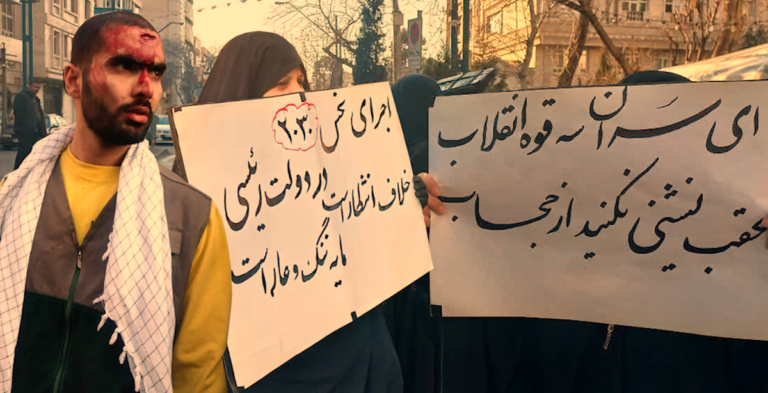 اجرای نحس ۲۰۳۰
خلاف انتظار است در دولت رئیسی
مایه ننگ و عار است
ای سران سه قوه انقلاب
عقب نشینی نکنید از حجاب